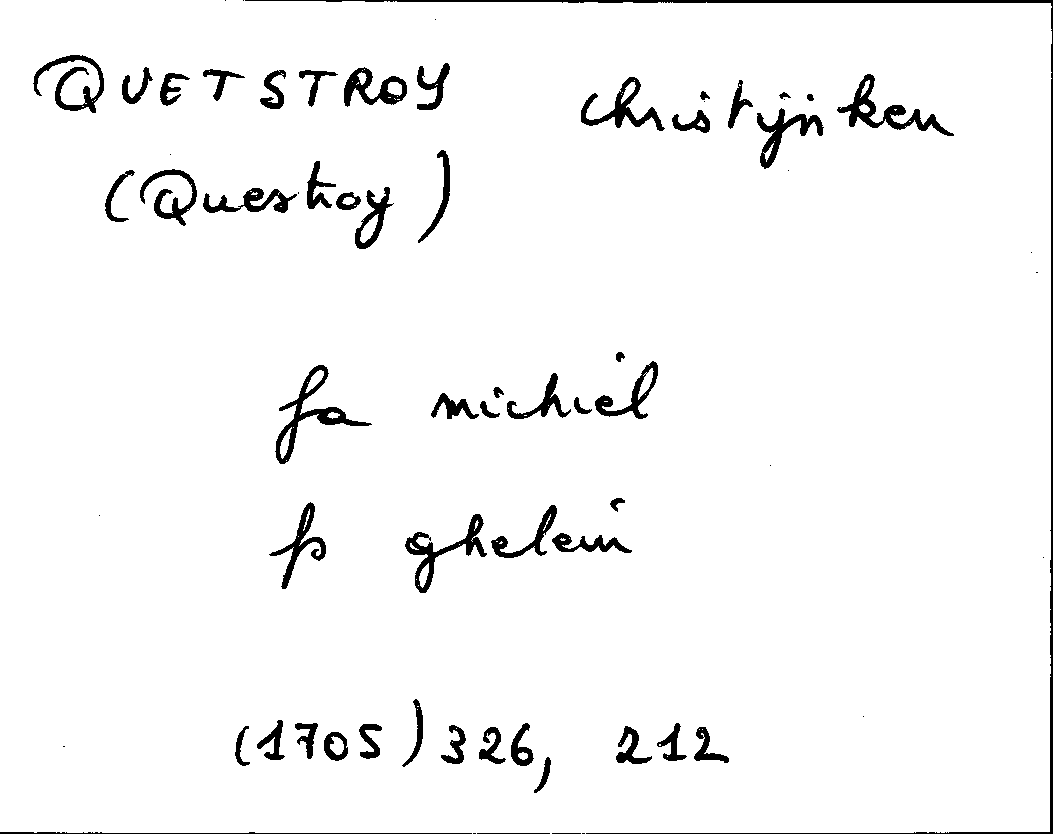 QUETSTROY christijnken
(Questroy)
fa michiel
fs ghelein
(1705) 326, 212